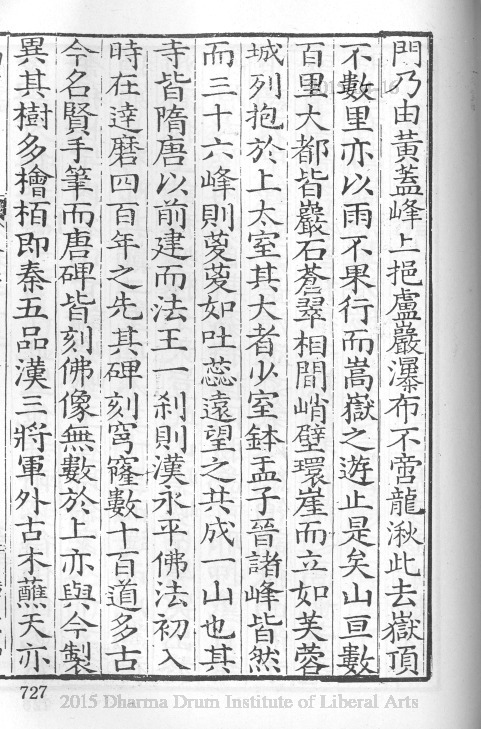 門乃由黃蓋峰上挹盧巖瀑布不啻龍湫此去嶽頂
不數里亦以雨不果行而嵩嶽之遊止是矣山亘數
百里大都皆巖石蒼翠相間峭壁環崖而立如芙蓉
城列抱於上太室其大者少室鉢盂子晉諸峰皆然
而三十六峰則蔆蔆如吐蕊遠望之共成一山也其
寺皆隋唐以前建而法王一刹則漢永平佛法初入
時在達磨四百年之先其碑刻穹窿數十百道多古
今名賢手筆而唐碑皆刻佛像無數於上亦與今製
異其樹多檜栢即秦五品漢三將軍外古木蘸天亦
727
2015 Dharma Drum Institute of Liberal Arts